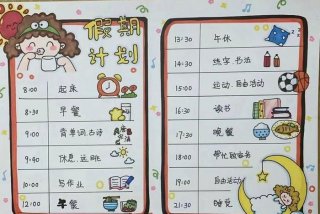 假期
计划
8:00 起床
8:30 早餐
9:00 背单词、古诗
9:40 休息、远眺
10:00 写作业
12:00 午餐
13:30 午休
14:30 练字、书法
15:00 运动、自由活动
16:30 读书
17:30 晚餐
18:00 帮忙做家务
19:00 自由活动
21:30 睡觉